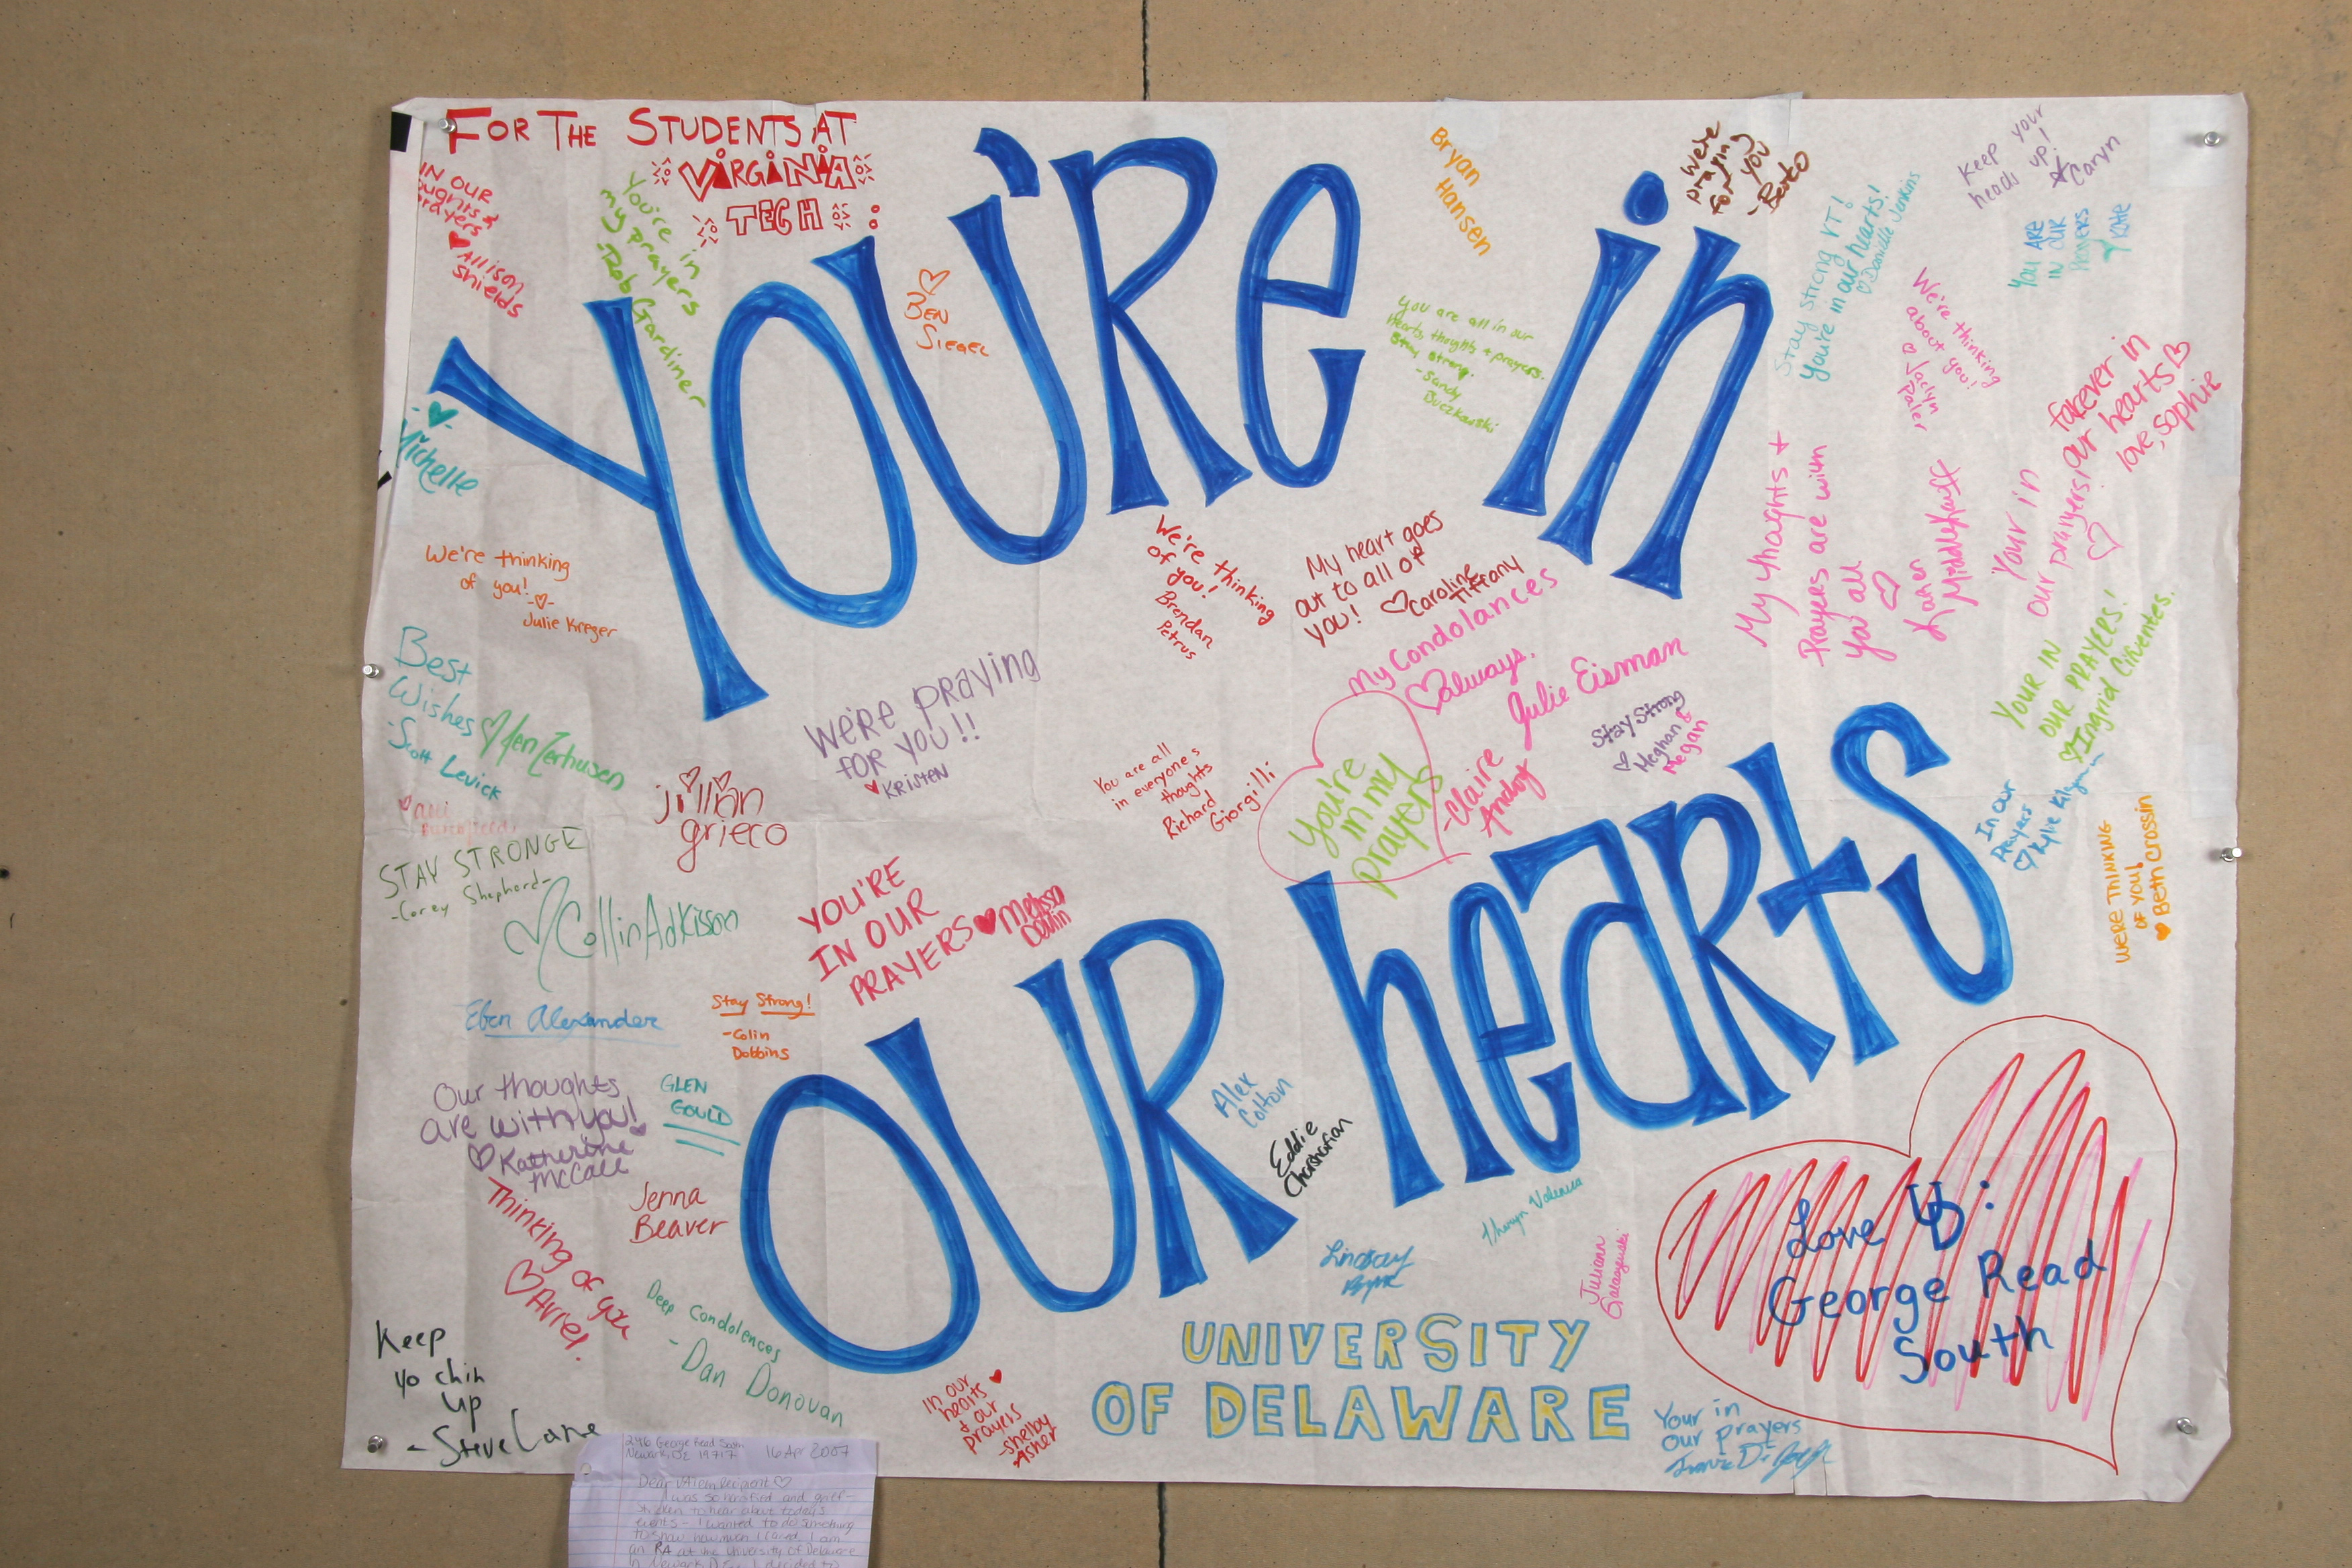 FOR THE STUDENTS AT
VIRGINIA
TECH
YOU'RE in
OUR hearts
UNIVERSITY
OF DELAWARE
Love UD:
George Read
South
IN OUR
prayers
Allison
Shields
You're in
my prayers
-Rob Gardiner
BEN
SIEGEL
Bryan
Hansen
We're
praying
For you
You are all in our
hearts, thoughts + prayers.
Stay strong.
- Sandy
Buczkowski
Stay strong VT!
You're in our hearts!
Danielle Jenkins
Keep your
heads up!
Caryn
YOU ARE
IN OUR
PRAYERS
KATIE
We're thinking
about you!
Jaclyn
forever in
our hearts
love, Sophie
Michelle
We're thinking
of you!
Julie Kreger
We're thinking
of you!
Brendan
Petrus
My heart goes
out to all of
you! Caroline
Tiffany
My Condolances
always.
Julie Eisman
My thoughts +
Prayers are with
you all
Lauren
Your in
our prayers!
YOUR IN
OUR PRAYERS!
Ingrid Cifuentes.
Best
Wishes
-Scott Levick
Jen Zerhusen
WE'RE PRAYING
FOR YOU!!
KRISTEN
jillian
grieco
You are all
in everyone's
thoughts
Richard
Giorgilli
You're
in my
prayers
-Claire
Stay Strong
Meghan &
Megan
In our
Prayers
Kylie
WERE THINKING
OF YOU!
BETH Crossin
STAY STRONGE
-Corey Shepherd-
Collin Adkisson
YOU'RE
IN OUR
PRAYERS Melissa
Eben Alexander
Stay Strong!
-Colin
Dobbins
Our thoughts
are with you!
Katherine
McCall
GLEN
GOULD
Alex
Colton
Eddie
Thinking of you
Arriel
Jenna
Beaver
Lindsay
Juliann
Deep Condolences
- Dan Donovan
Keep
yo chin
up
- Steve Lane
In our
hearts
& our
prayers
-Shelby
Asher
Your in
our prayers
246 George Read South
Newark, DE 19717 16 Apr 2007
Dear VA Tech Recipient
I was so horrified and grief-
stricken to hear about today's
events - I wanted to do something
to show how much I cared. I am
an RA at the University of Delaware
in Newark, DE I decided to